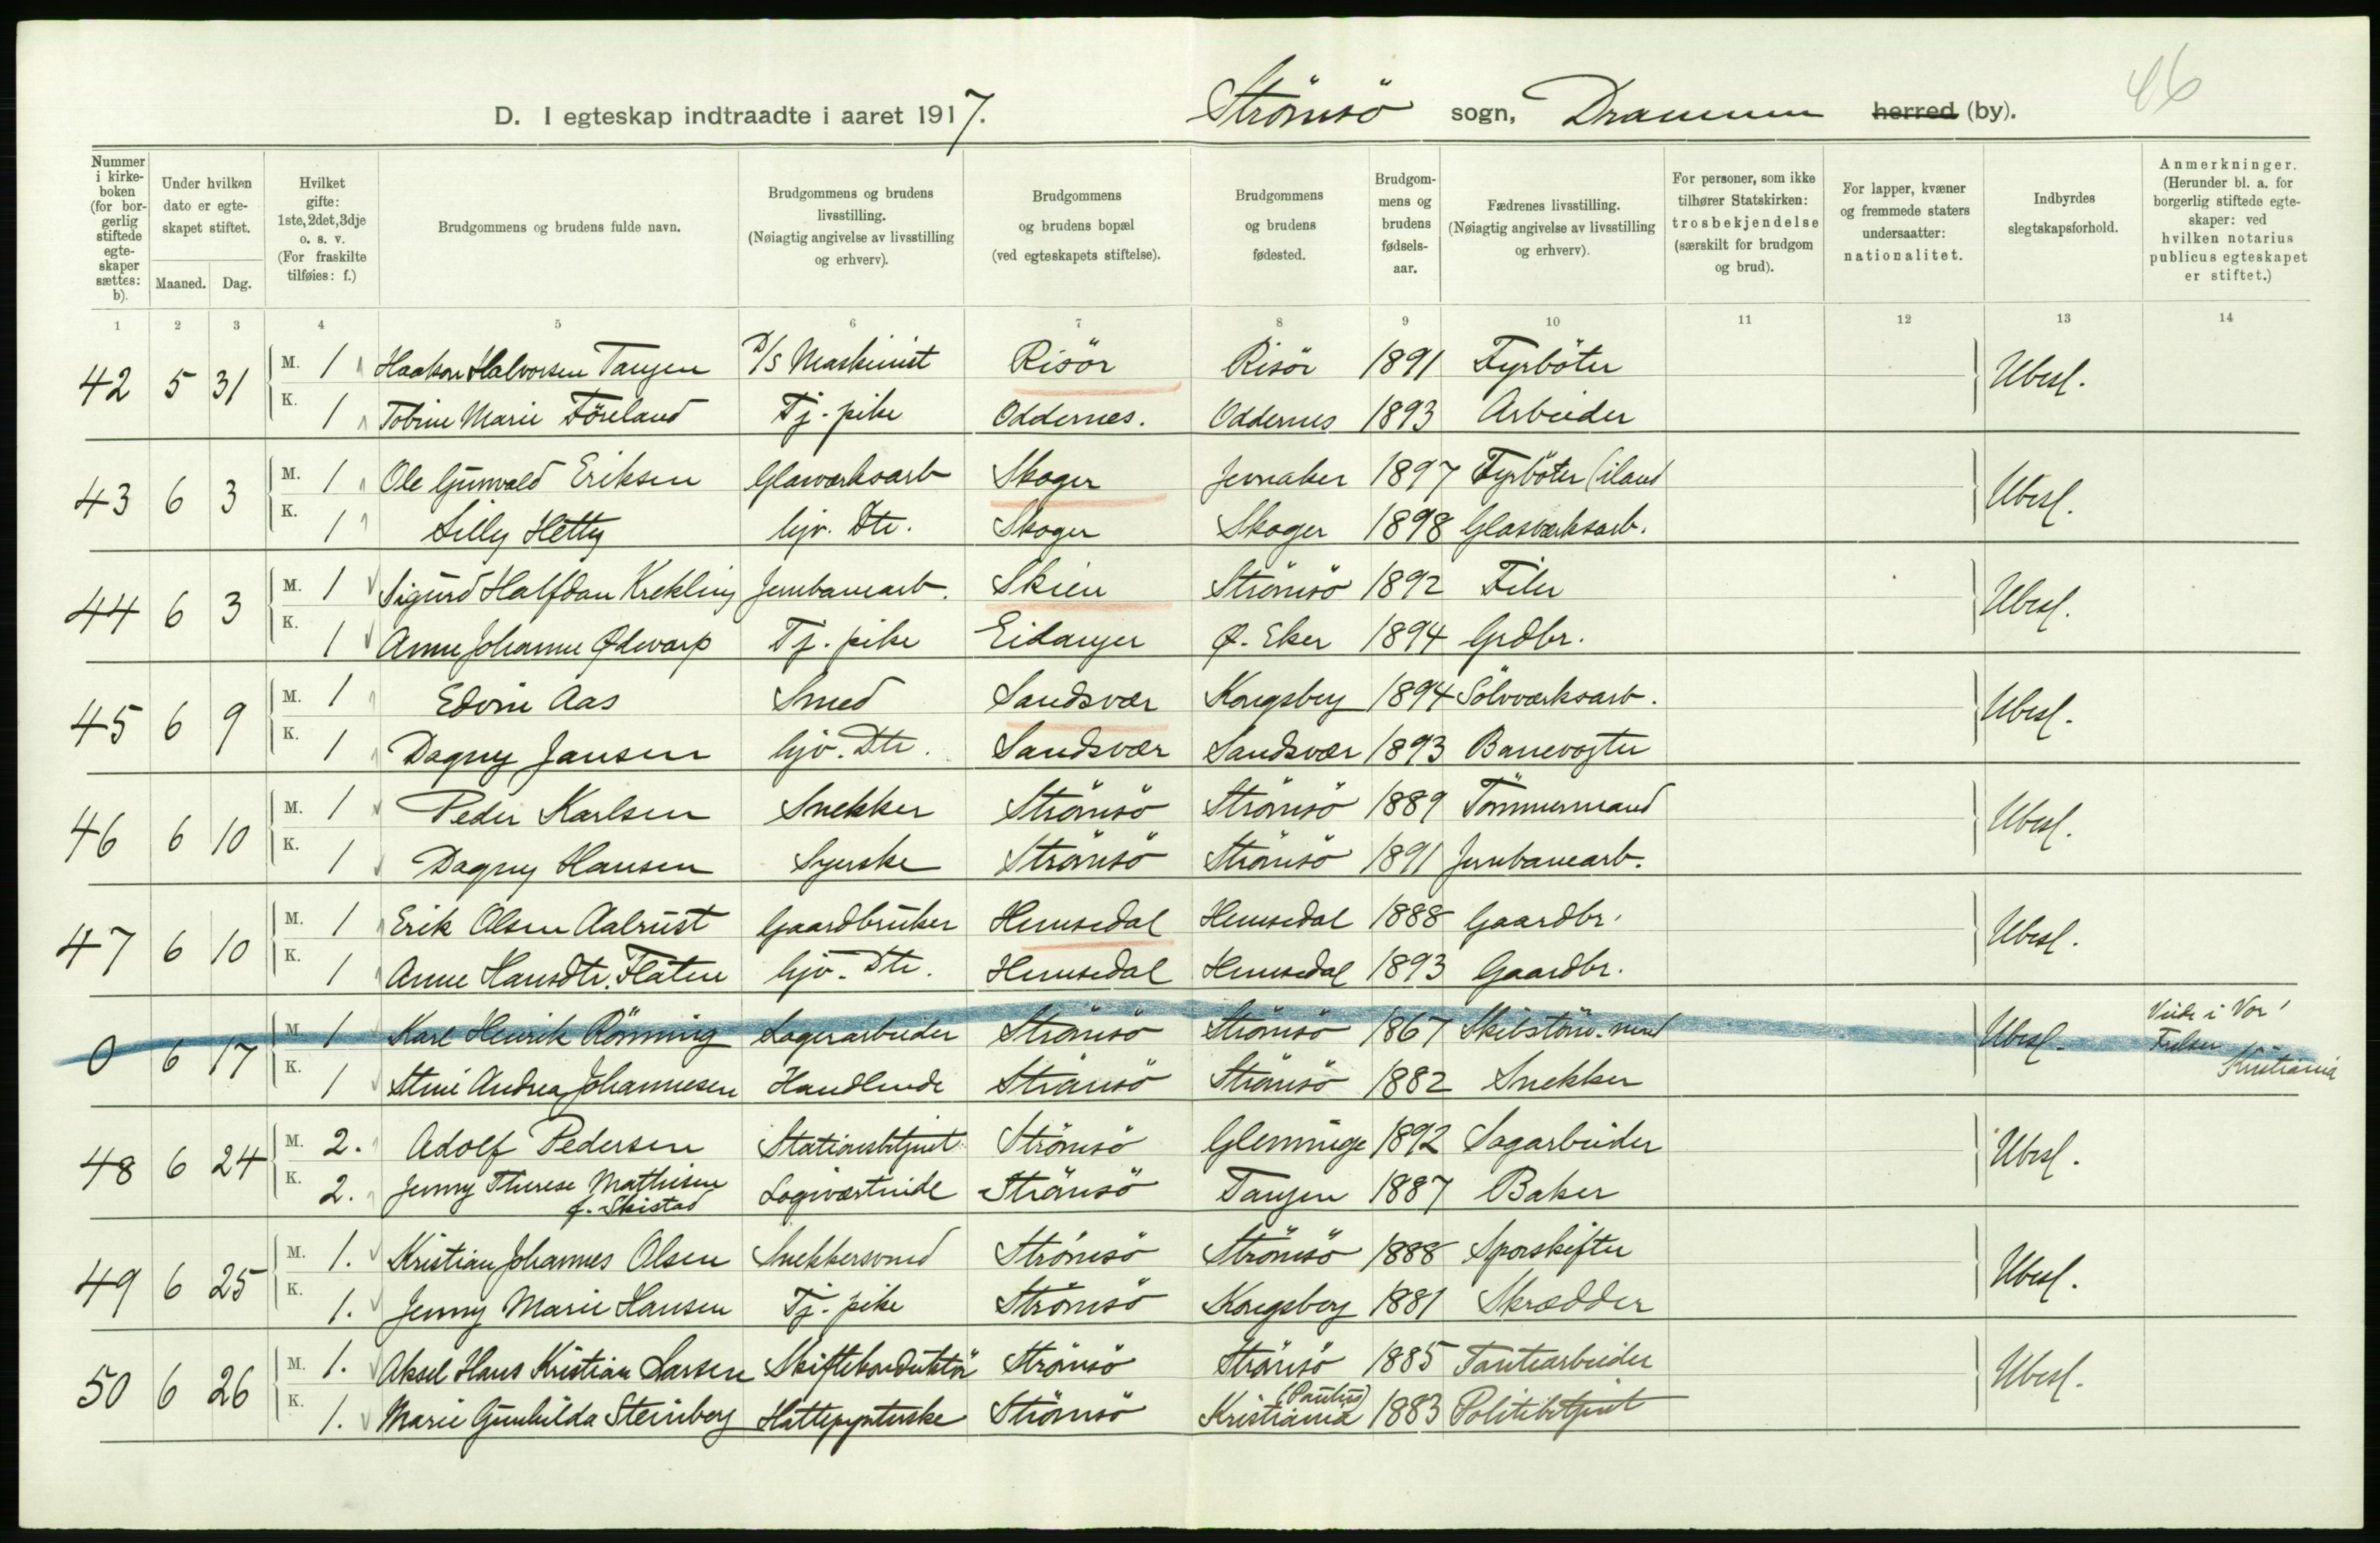 46
D. I egteskap indtraadte i aaret 1917. Strömsö sogn, Drammen herred (by).
Nummer i kirke-boken (for bor-gerlig stiftede egte-skaper sættes: b).
Under hvilken dato er egte-skapet stiftet.
Maaned. Dag.
Hvilket gifte: 1ste, 2det, 3dje o. s. v. (For fraskilte tilføies: f.)
Brudgommens og brudens fulde navn.
Brudgommens og brudens livsstilling. (Nøiagtig angivelse av livsstilling og erhverv).
Brudgommens og brudens bopæl (ved egteskapets stiftelse).
Brudgommens og brudens fødested.
Brudgom-mens og brudens fødsels-aar.
Fædrenes livsstilling. (Nøiagtig angivelse av livsstilling og erhverv).
For personer, som ikke tilhører Statskirken: trosbekjendelse (særskilt for brudgom og brud).
For lapper, kvæner og fremmede staters undersaatter: nationalitet.
Indbyrdes slegtskapsforhold.
Anmerkninger. (Herunder bl. a. for borgerlig stiftede egte-skaper: ved hvilken notarius publicus egteskapet er stiftet.)
1 2 3 4 5 6 7 8 9 10 11 12 13 14
42 5 31 M. 1 Haakon Halvorsen Tangen D/S Maskinist Risör Risör 1891 Fyrböter Ubesl.
K. 1 Tobine Marie Föreland Tj. pike Oddernes. Oddernes 1893 Arbeider
43 6 3 M. 1 Ole Gunvald Eriksen Glasværksarb Skoger Jevnaker 1897 Fyrböter (iland Ubesl.
K. 1 Lilly Hetty hjv. Dtr. Skoger Skoger 1898 Glasværksarb.
44 6 3 M. 1 Sigurd Halfdan Krekling Jernbanearb. Skien Strömsö 1892 Filer Ubesl.
K. 1 Anne Johanne Ødevarp Tj. pike Eidanger Ø. Eker 1894 Grdbr.
45 6 9 M. 1 Edvin Aas Smed Sandsvær Kongsberg 1894 Sölvværksarb. Ubesl.
K. 1 Dagny Jansen hjv. Dtr. Sandsvær Sandsvær 1893 Banevogter
46 6 10 M. 1 Peder Karlsen Snekker Strömsö Strömsö 1889 Tömmermand Ubesl.
K. 1 Dagny Hansen Syerske Strömsö Strömsö 1891 Jernbanearb.
47 6 10 M. 1 Erik Olsen Aalrust Gaardbruker Hemsedal Hemsedal 1888 Gaardbr. Ubesl.
K. 1 Anne Hansdtr. Flaten hjv. Dtr. Hemsedal Hemsedal 1893 Gaardbr.
0 6 17 M 1 Karl Henrik Rönning Lagerarbeider Strömsö Strömsö 1867 Ubesl. i Vor Frelser Kristiania
K. 1 Andrea Johannesen Handlende Strömsö Strömsö 1882 Snekker
48 6 24 M. 2. Adolf Pedersen Stationsbetjent Strömsö Glemminge 1892 Sagarbeider Ubesl.
K. 2. Jenny Therese Mathisen f. Skistad Logiværtinde Strömsö Tangen 1887 Baker
49 6 25 M. 1. Kristian Johannes Olsen Snekkersvend Strömsö Strömsö 1888 Sporskifter Ubesl.
K. 1. Jenny Marie Hansen Tj. pike Strömsö Kongsberg 1881 Skrædder
50 6 26 M. 1. Aksel Hans Kristian Larsen Skiftekonduktör Strömsö Strömsö 1885 Tomtearbeider Ubesl.
K. 1. Marie Gunhilda Steinberg Hattepynterske Strömsö Kristiania (Paulus) 1883 Politibetjent